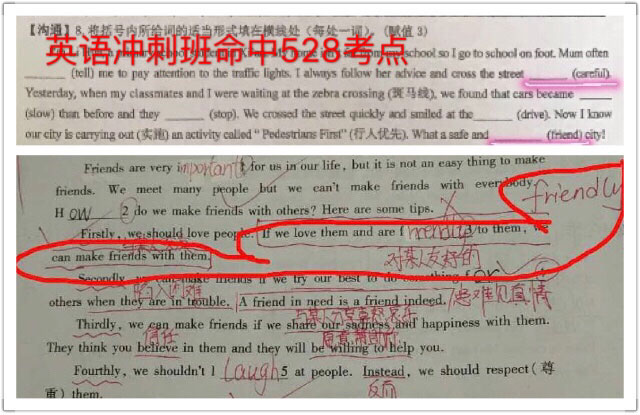 【沟通】8.将括号内所给词的适当形式填在横线处（每处一词）。（赋值3）
英语冲刺班命中528考点
my school so I go to school on foot. Mum often
(tell) me to pay attention to the traffic lights. I always follow her advice and cross the street (careful).
Yesterday, when my classmates and I were waiting at the zebra crossing (斑马线), we found that cars became
(slow) than before and they (stop). We crossed the street quickly and smiled at the (drive). Now I know
our city is carrying out (实施) an activity called "Pedestrians First" (行人优先). What a safe and (friend) city!
Friends are very important1 for us in our life, but it is not an easy thing to make
friends. We meet many people but we can't make friends with everybody.
friendly
How 2 do we make friends with others? Here are some tips.
Firstly, we should love people. If we love them and are friendly to them, we
can make friends with them. 对某人友好的
Secondly, we can make friends if we try our best to do something for
others when they are in trouble. A friend in need is a friend indeed. 患难见真情
Thirdly, we can make friends if we share our sadness and happiness with them.
信任
They think you believe in them and they will be willing to help you.
Fourthly, we shouldn't laugh5 at people. Instead, we should respect (尊
重) them. 反而